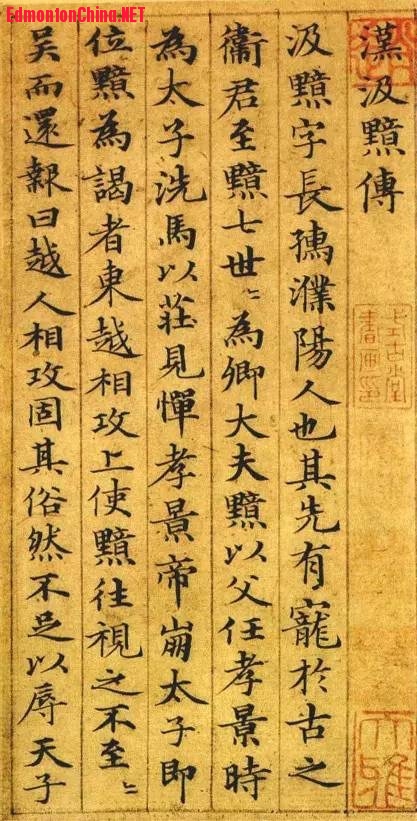 EdmontonChina.NET
漢汲黯傳
汲黯字長孺濮陽人也其先有寵於古之
衛君至黯七世〻為卿大夫黯以父任孝景時
為太子洗馬以莊見憚孝景帝崩太子即
位黯為謁者東越相攻上使黯往視之不至〻
吳而還報曰越人相攻固其俗然不足以辱天子
式古堂
書畫印